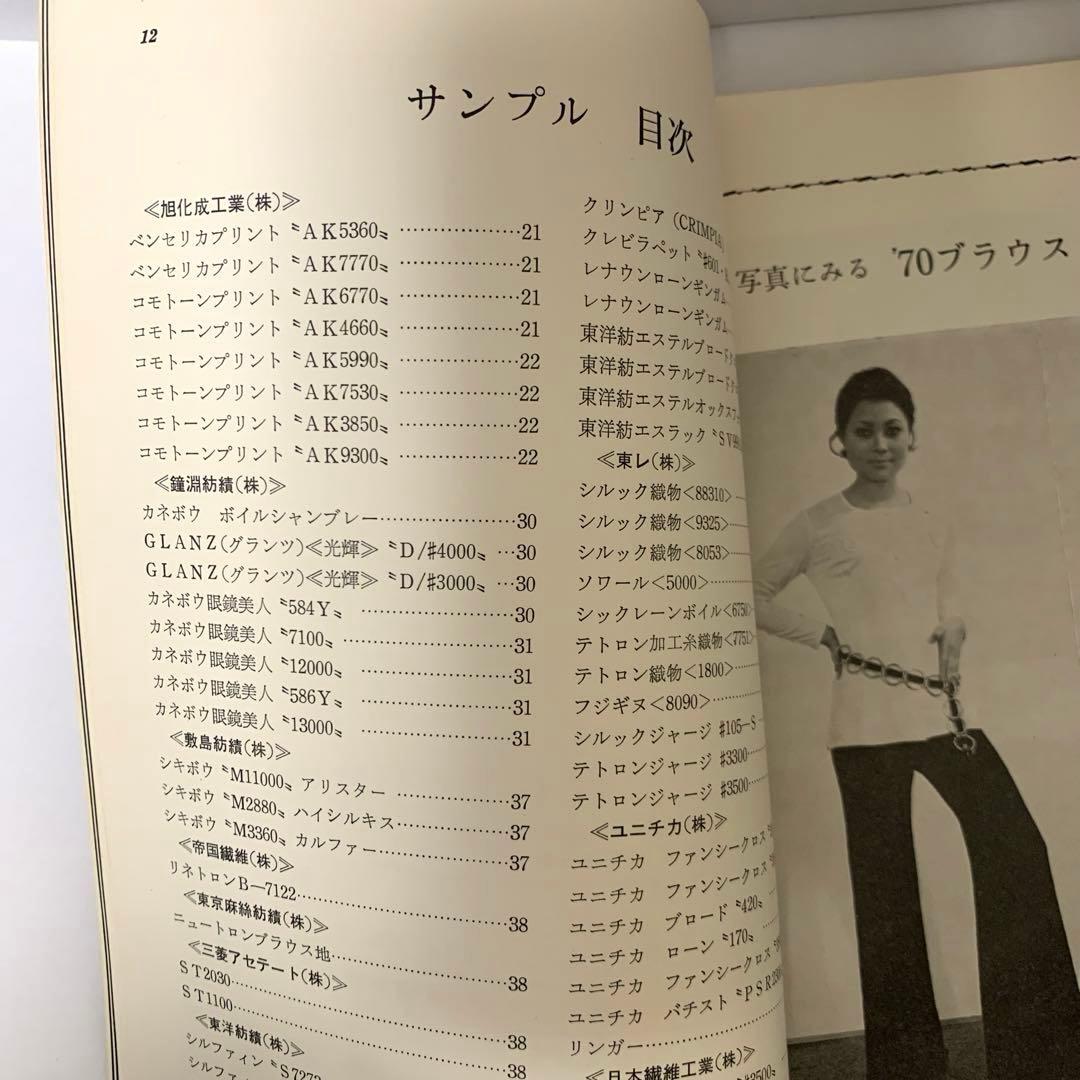 12
サンプル 目次
≪旭化成工業(株)≫
ベンセリカプリント〝AK5360〟………………21
ベンセリカプリント〝AK7770〟………………21
コモトーンプリント〝AK6770〟………………21
コモトーンプリント〝AK4660〟………………21
コモトーンプリント〝AK5990〟………………22
コモトーンプリント〝AK7530〟………………22
コモトーンプリント〝AK3850〟………………22
コモトーンプリント〝AK9300〟………………22
≪鐘淵紡績(株)≫
カネボウ ボイルシャンブレー…………………30
GLANZ(グランツ)≪光輝≫〝D/♯4000〟…30
GLANZ(グランツ)≪光輝≫〝D/♯3000〟…30
カネボウ眼鏡美人〝584Y〟……………………30
カネボウ眼鏡美人〝7100〟……………………31
カネボウ眼鏡美人〝12000〟……………………31
カネボウ眼鏡美人〝586Y〟……………………31
カネボウ眼鏡美人〝13000〟……………………31
≪敷島紡績(株)≫
シキボウ〝M11000〟アリスター………………37
シキボウ〝M2880〟ハイシルキス………………37
シキボウ〝M3360〟カルファー…………………37
≪帝国繊維(株)≫
リネトロンB―7122………………………………38
≪東京麻絲紡績(株)≫
ニュートロンブラウス地…………………………38
≪三菱アセテート(株)≫
ST2030……………………………………………38
ST1100……………………………………………38
≪東洋紡績(株)≫
シルファイン〝S7273
シルファイン
クリンピア(CRIMPIA)
クレビラペット〝♯601・
レナウンローンギンガム
レナウンローンギンガム
東洋紡エステルブロード
東洋紡エステルブロード
東洋紡エステルオックス
東洋紡エスラック〝SV
≪東レ(株)≫
シルック織物<88310>……
シルック織物<9325>……
シルック織物<8053>……
ソワール<5000>………
シックレーンボイル<6750>
テトロン加工糸織物<7751>
テトロン織物<1800>……
フジギヌ<8090>…………
シルックジャージ ♯105―S…
テトロンジャージ ♯3300……
テトロンジャージ ♯3500……
≪ユニチカ(株)≫
ユニチカ ファンシークロス
ユニチカ ファンシークロス
ユニチカ ブロード〝420〟
ユニチカ ローン〝170〟……
ユニチカ ファンシークロス
ユニチカ バチスト〝PSR
リンガー………………
≪日本繊維工業(株)≫
♯3500〟
写真にみる '70ブラウス